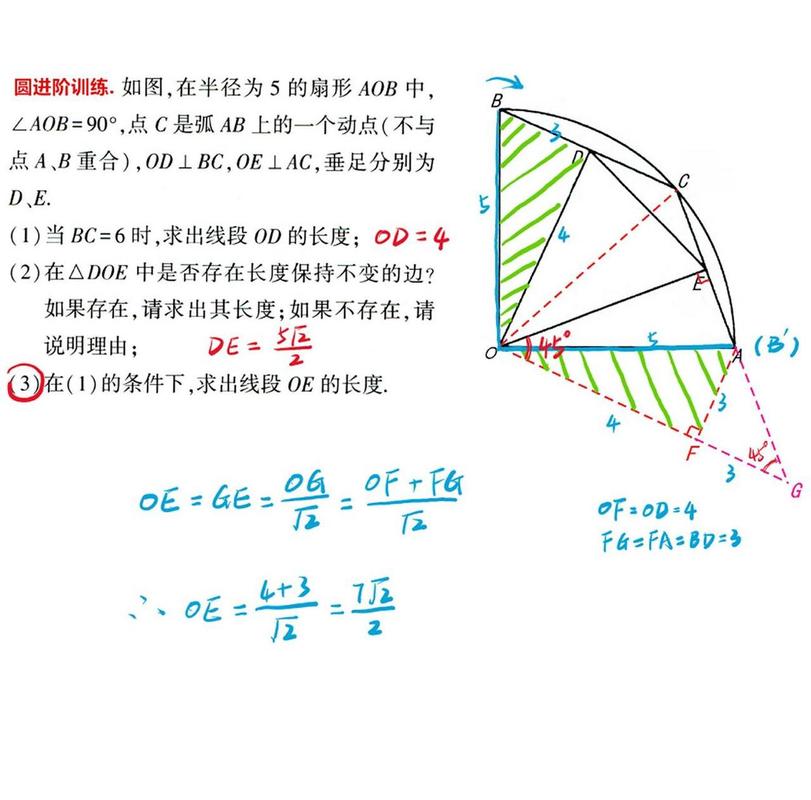 圆进阶训练. 如图,在半径为 5 的扇形 AOB 中,
∠AOB=90°,点 C 是弧 AB 上的一个动点(不与
点 A、B 重合),OD⊥BC,OE⊥AC,垂足分别为
D、E.
(1)当 BC=6 时,求出线段 OD 的长度; OD=4
(2)在△DOE 中是否存在长度保持不变的边?
如果存在,请求出其长度;如果不存在,请
说明理由; DE=5√2/2
(3)在(1)的条件下,求出线段 OE 的长度.
B
3
D
C
5
4
E
O
45°
5
A (B′)
4
3
F
3
45°
G
OE=GE=OG/√2=OF+FG/√2
OF=OD=4
FG=FA=BD=3
∴ OE=4+3/√2=7√2/2